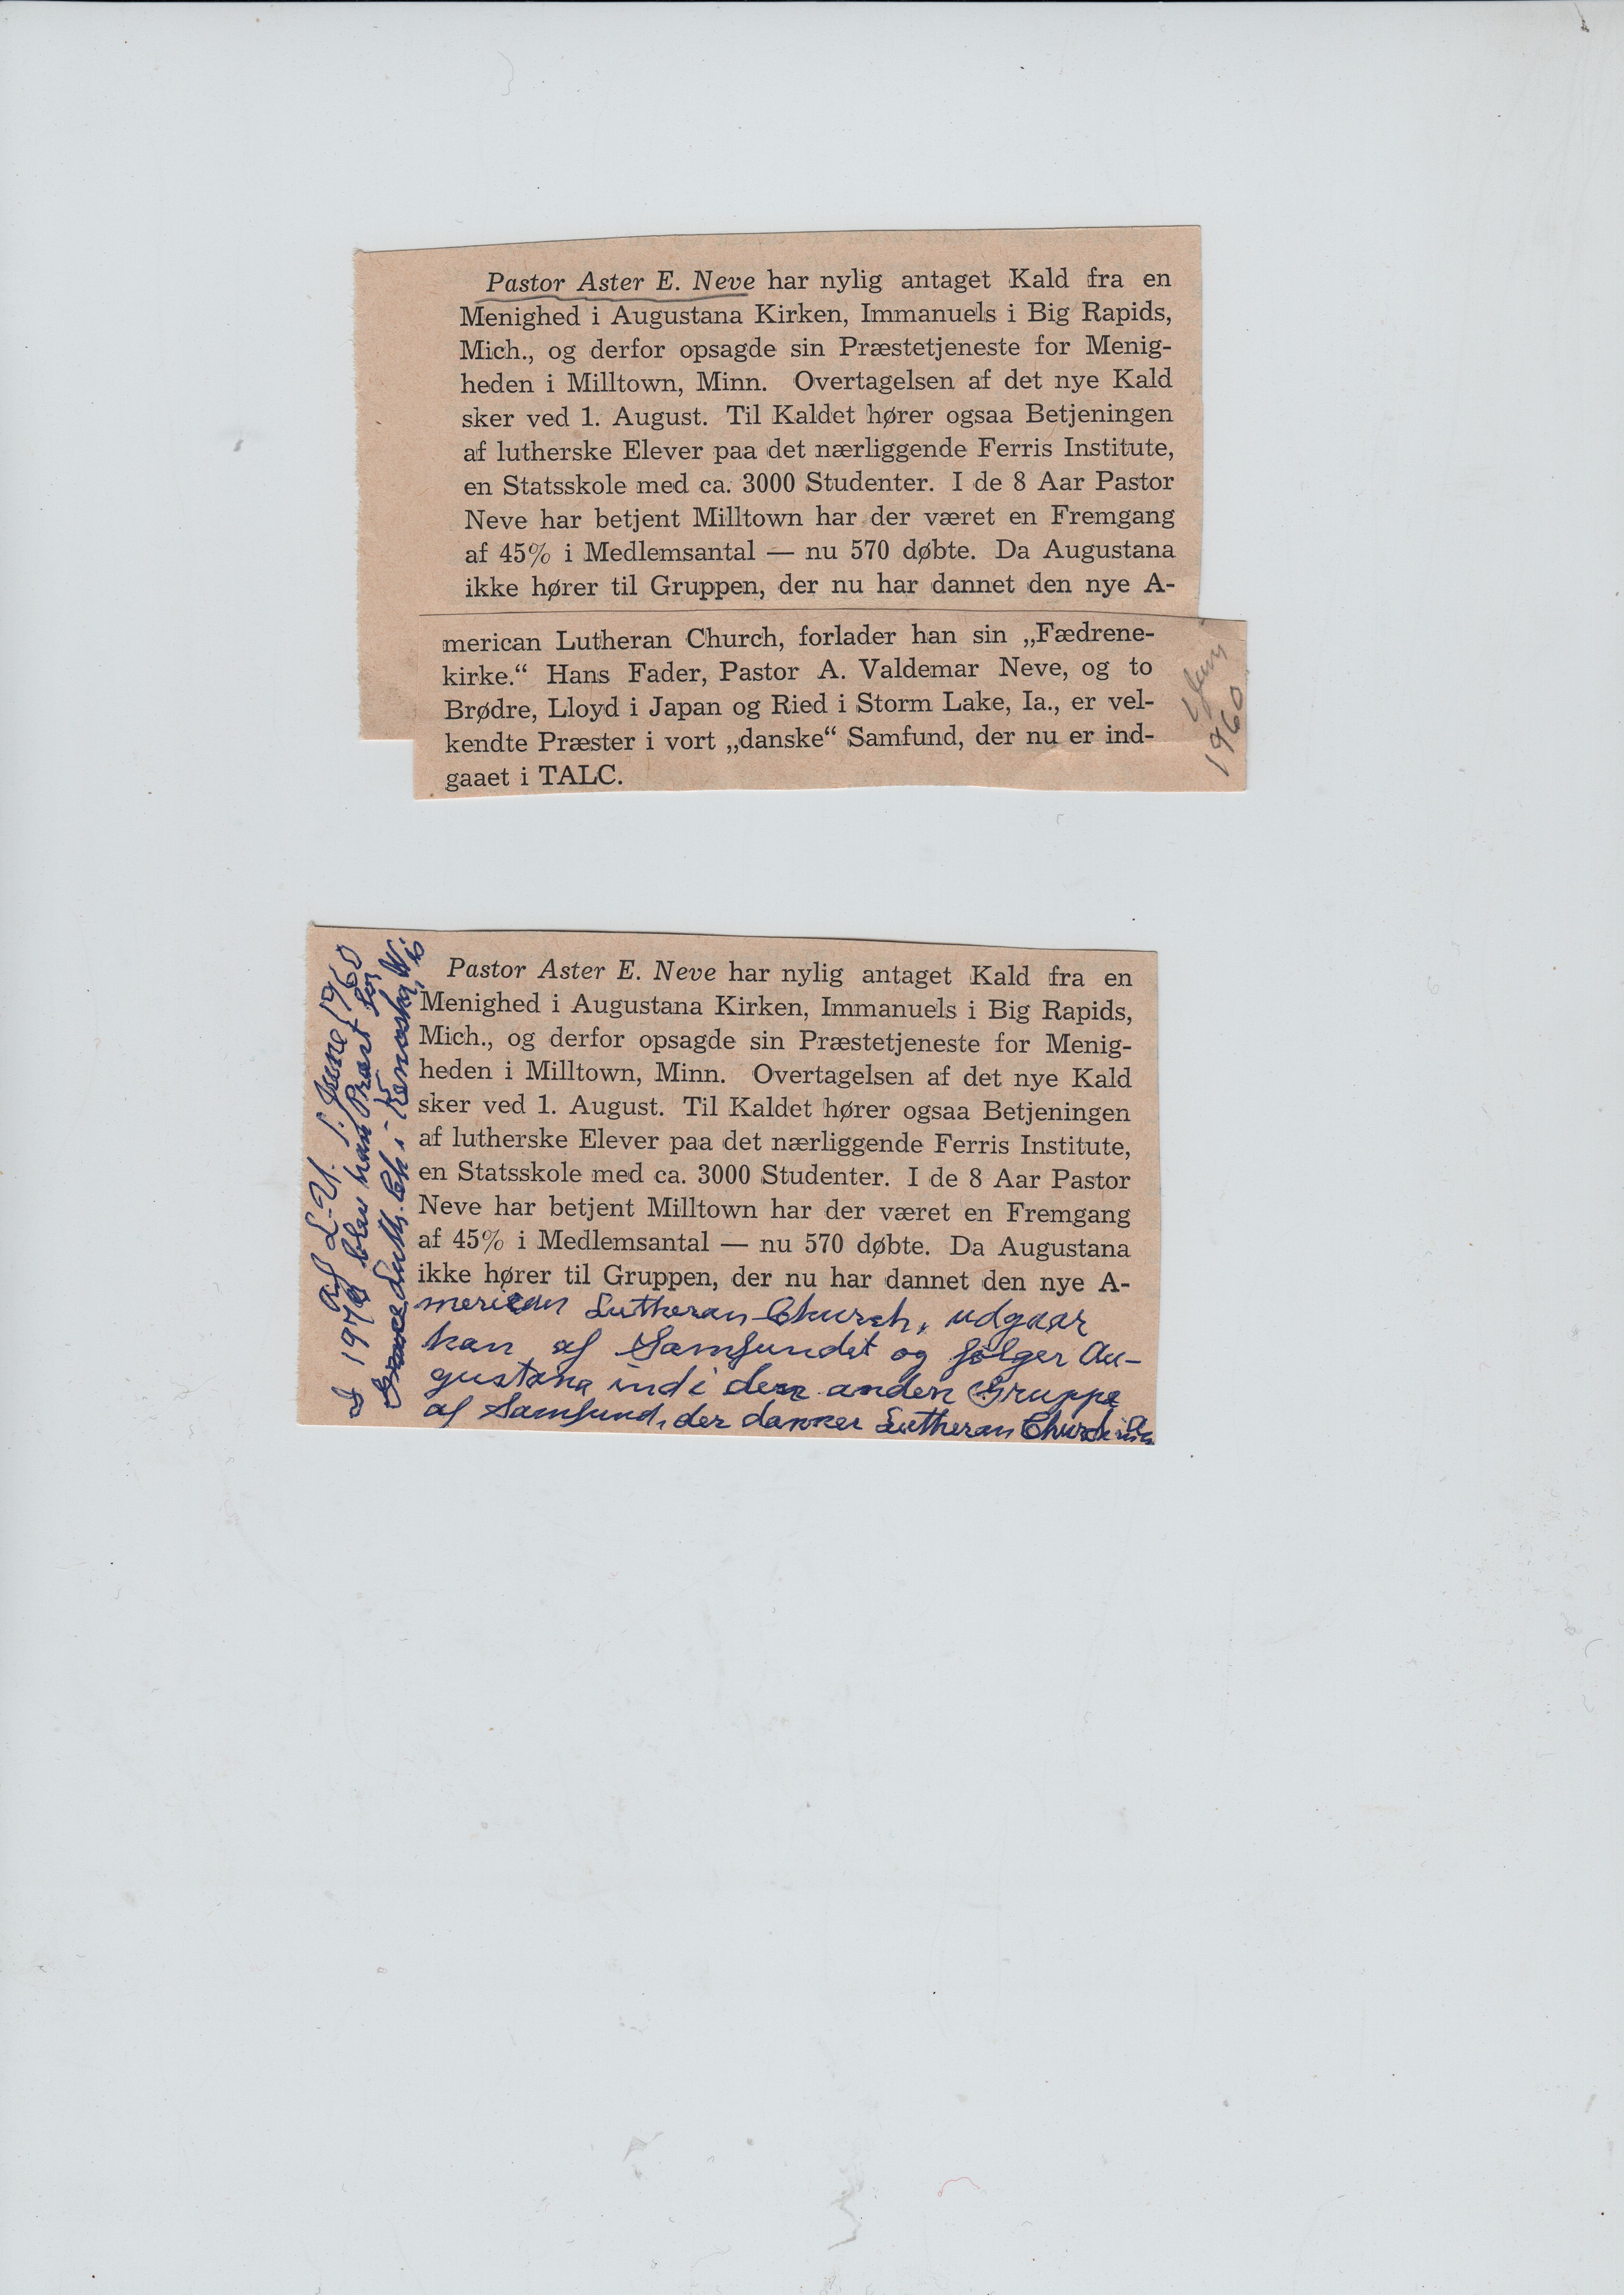 Pastor Aster E. Neve har nylig antaget Kald fra en
Menighed i Augustana Kirken, Immanuels i Big Rapids,
Mich., og derfor opsagde sin Præstetjeneste for Menig-
heden i Milltown, Minn. Overtagelsen af det nye Kald
sker ved 1. August. Til Kaldet hører ogsaa Betjeningen
af lutherske Elever paa det nærliggende Ferris Institute,
en Statsskole med ca. 3000 Studenter. I de 8 Aar Pastor
Neve har betjent Milltown har der været en Fremgang
af 45% i Medlemsantal — nu 570 døbte. Da Augustana
ikke hører til Gruppen, der nu har dannet den nye A-
merican Lutheran Church, forlader han sin „Fædrene-
kirke.“ Hans Fader, Pastor A. Valdemar Neve, og to
Brødre, Lloyd i Japan og Ried i Storm Lake, Ia., er vel-
kendte Præster i vort „danske“ Samfund, der nu er ind-
gaaet i TALC.
1960
Pastor Aster E. Neve har nylig antaget Kald fra en
Menighed i Augustana Kirken, Immanuels i Big Rapids,
Mich., og derfor opsagde sin Præstetjeneste for Menig-
heden i Milltown, Minn. Overtagelsen af det nye Kald
sker ved 1. August. Til Kaldet hører ogsaa Betjeningen
af lutherske Elever paa det nærliggende Ferris Institute,
en Statsskole med ca. 3000 Studenter. I de 8 Aar Pastor
Neve har betjent Milltown har der været en Fremgang
af 45% i Medlemsantal — nu 570 døbte. Da Augustana
ikke hører til Gruppen, der nu har dannet den nye A-
merican Lutheran Church, udgaar
han af Samfundet og følger Au-
gustana ind i den anden Gruppe
af Samfund, der danner Lutheran Church in
Af L-U. 1. June 1960
I blev han Præst for
Grace Luth. Ch. i Kenosha, Wis